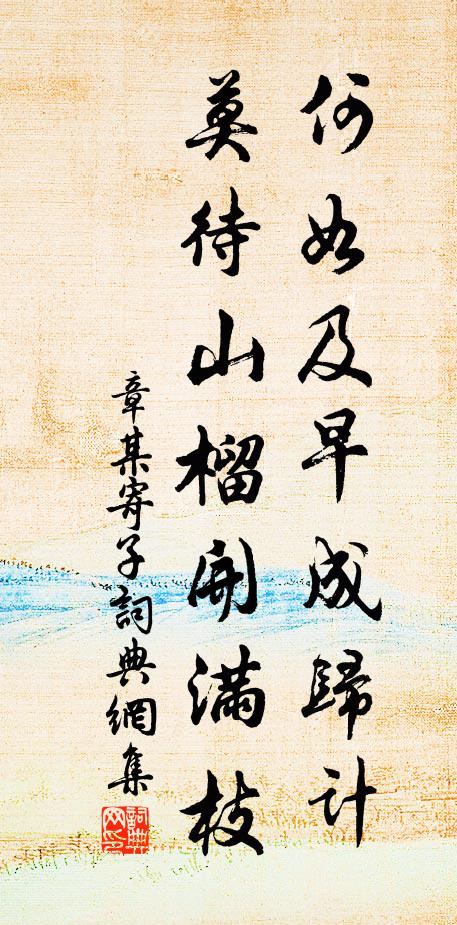 何如及早成歸計
莫待山榴開滿枝
章某寄子詞典網集
詞典网印